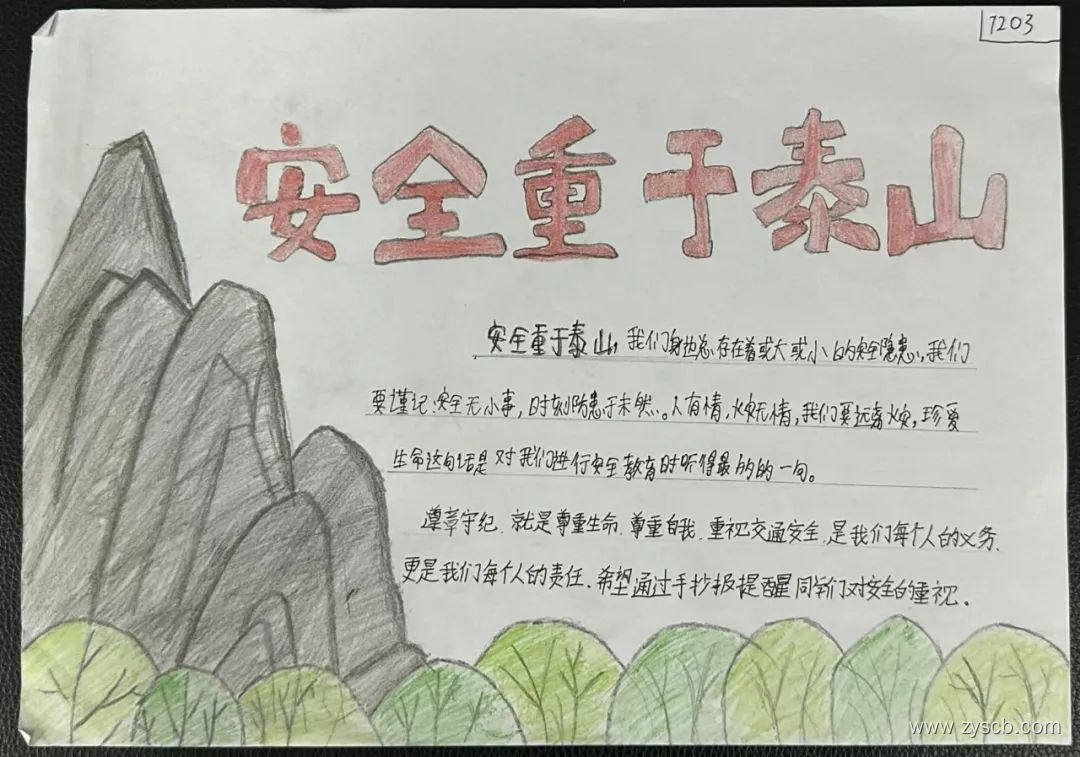 1203
安全重于泰山
安全重于泰山,我们身边总存在着或大或小的安全隐患,我们
要谨记:安全无小事,时刻防患于未然。人有情,火灾无情,我们要远离火灾,珍爱
生命这句话是对我们进行安全教育时听得最多的的一句。
遵章守纪.就是尊重生命.尊重自我.重视交通安全.是我们每个人的义务.
更是我们每个人的责任.希望通过手抄报提醒同学们对安全的重视.
www.zyscb.com